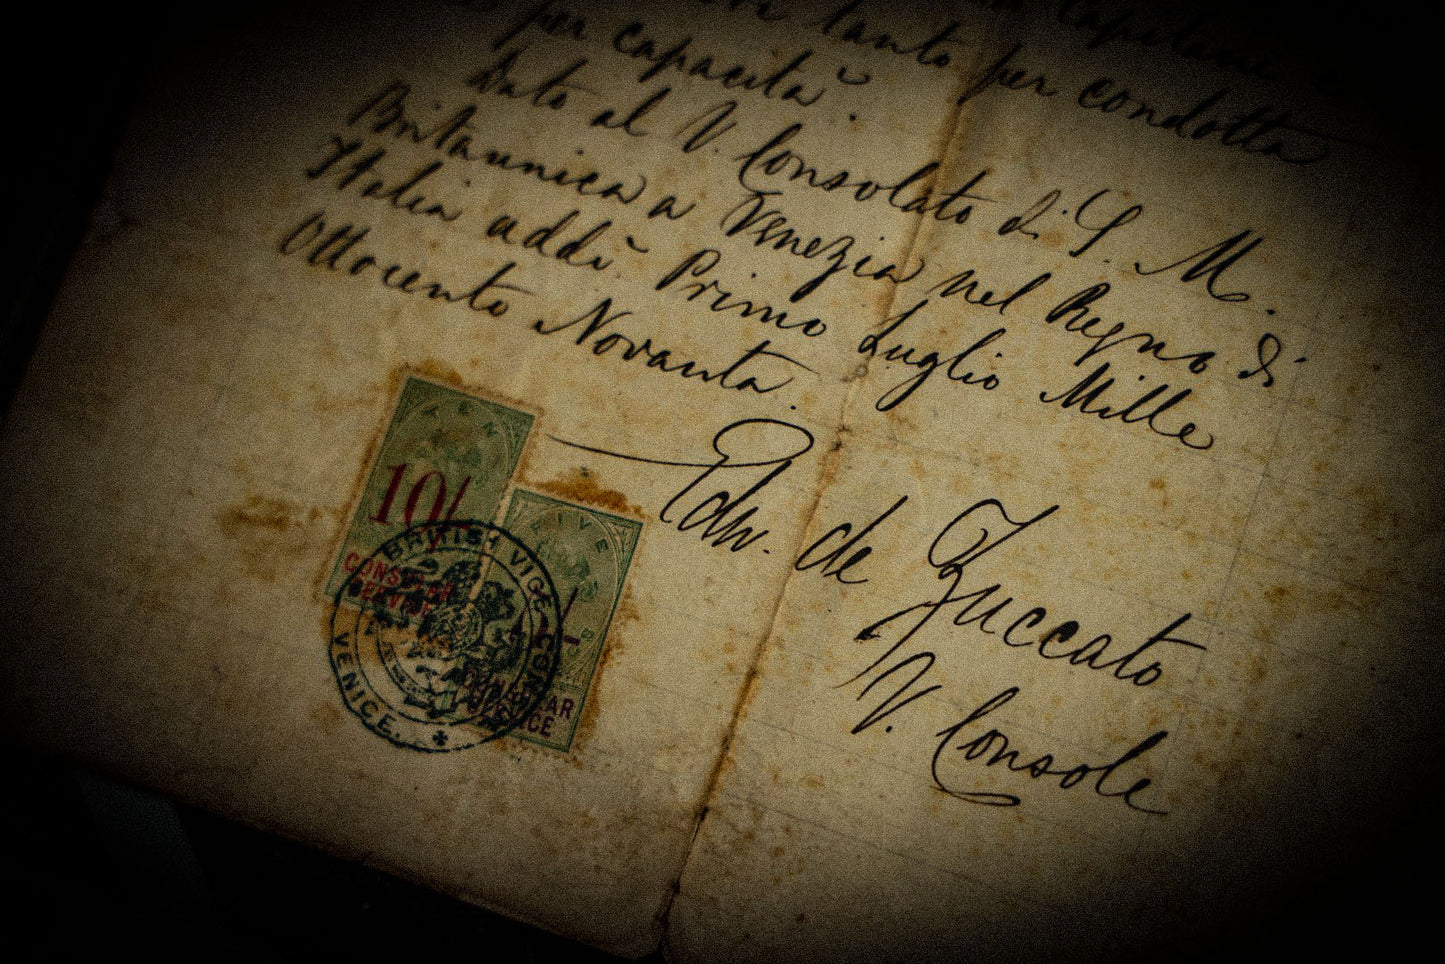 Capitani
tanto per condotta
per capacità.
Dato al V. Consolato di S. M.
Britannica a Venezia nel Regno di
Italia addì Primo Luglio Mille
Ottocento Novanta.
Edw. de Zuccato
V. Console
10/
CONSULAR
SERVICE
CONSULAR
SERVICE
BRITISH VICE CONSUL
VENICE.